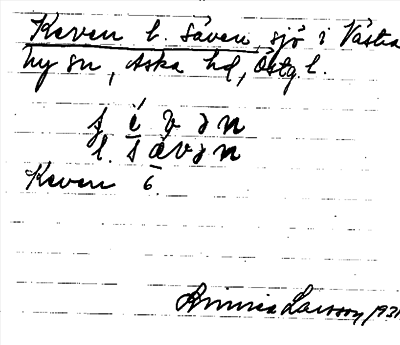 Keven l. Säven, sjö i Västra
Ny sn, Aska hd, Östg. l.
s é v ə n
l. s ǽ v ə n
Keven 6.
Larsson 1931